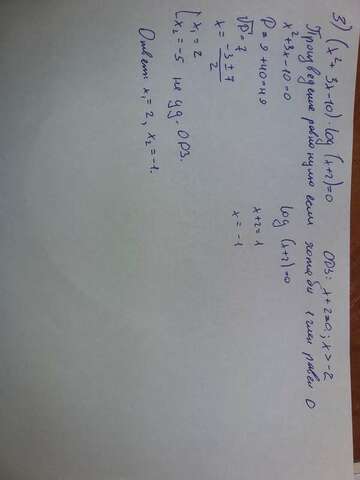 3) (x²+3x-10)·log(x+2)=0 ОДЗ: x+2>0; x>-2
Произведение равно нулю если хотя бы 1 член равен 0
x²+3x-10=0 log(x+2)=0
D=9+40=49 x+2=1
√D=7 x=-1
x=(-3±7)/2
[x₁=2
x₂=-5 не уд. ОДЗ.
Ответ: x₁=2, x₂=-1.